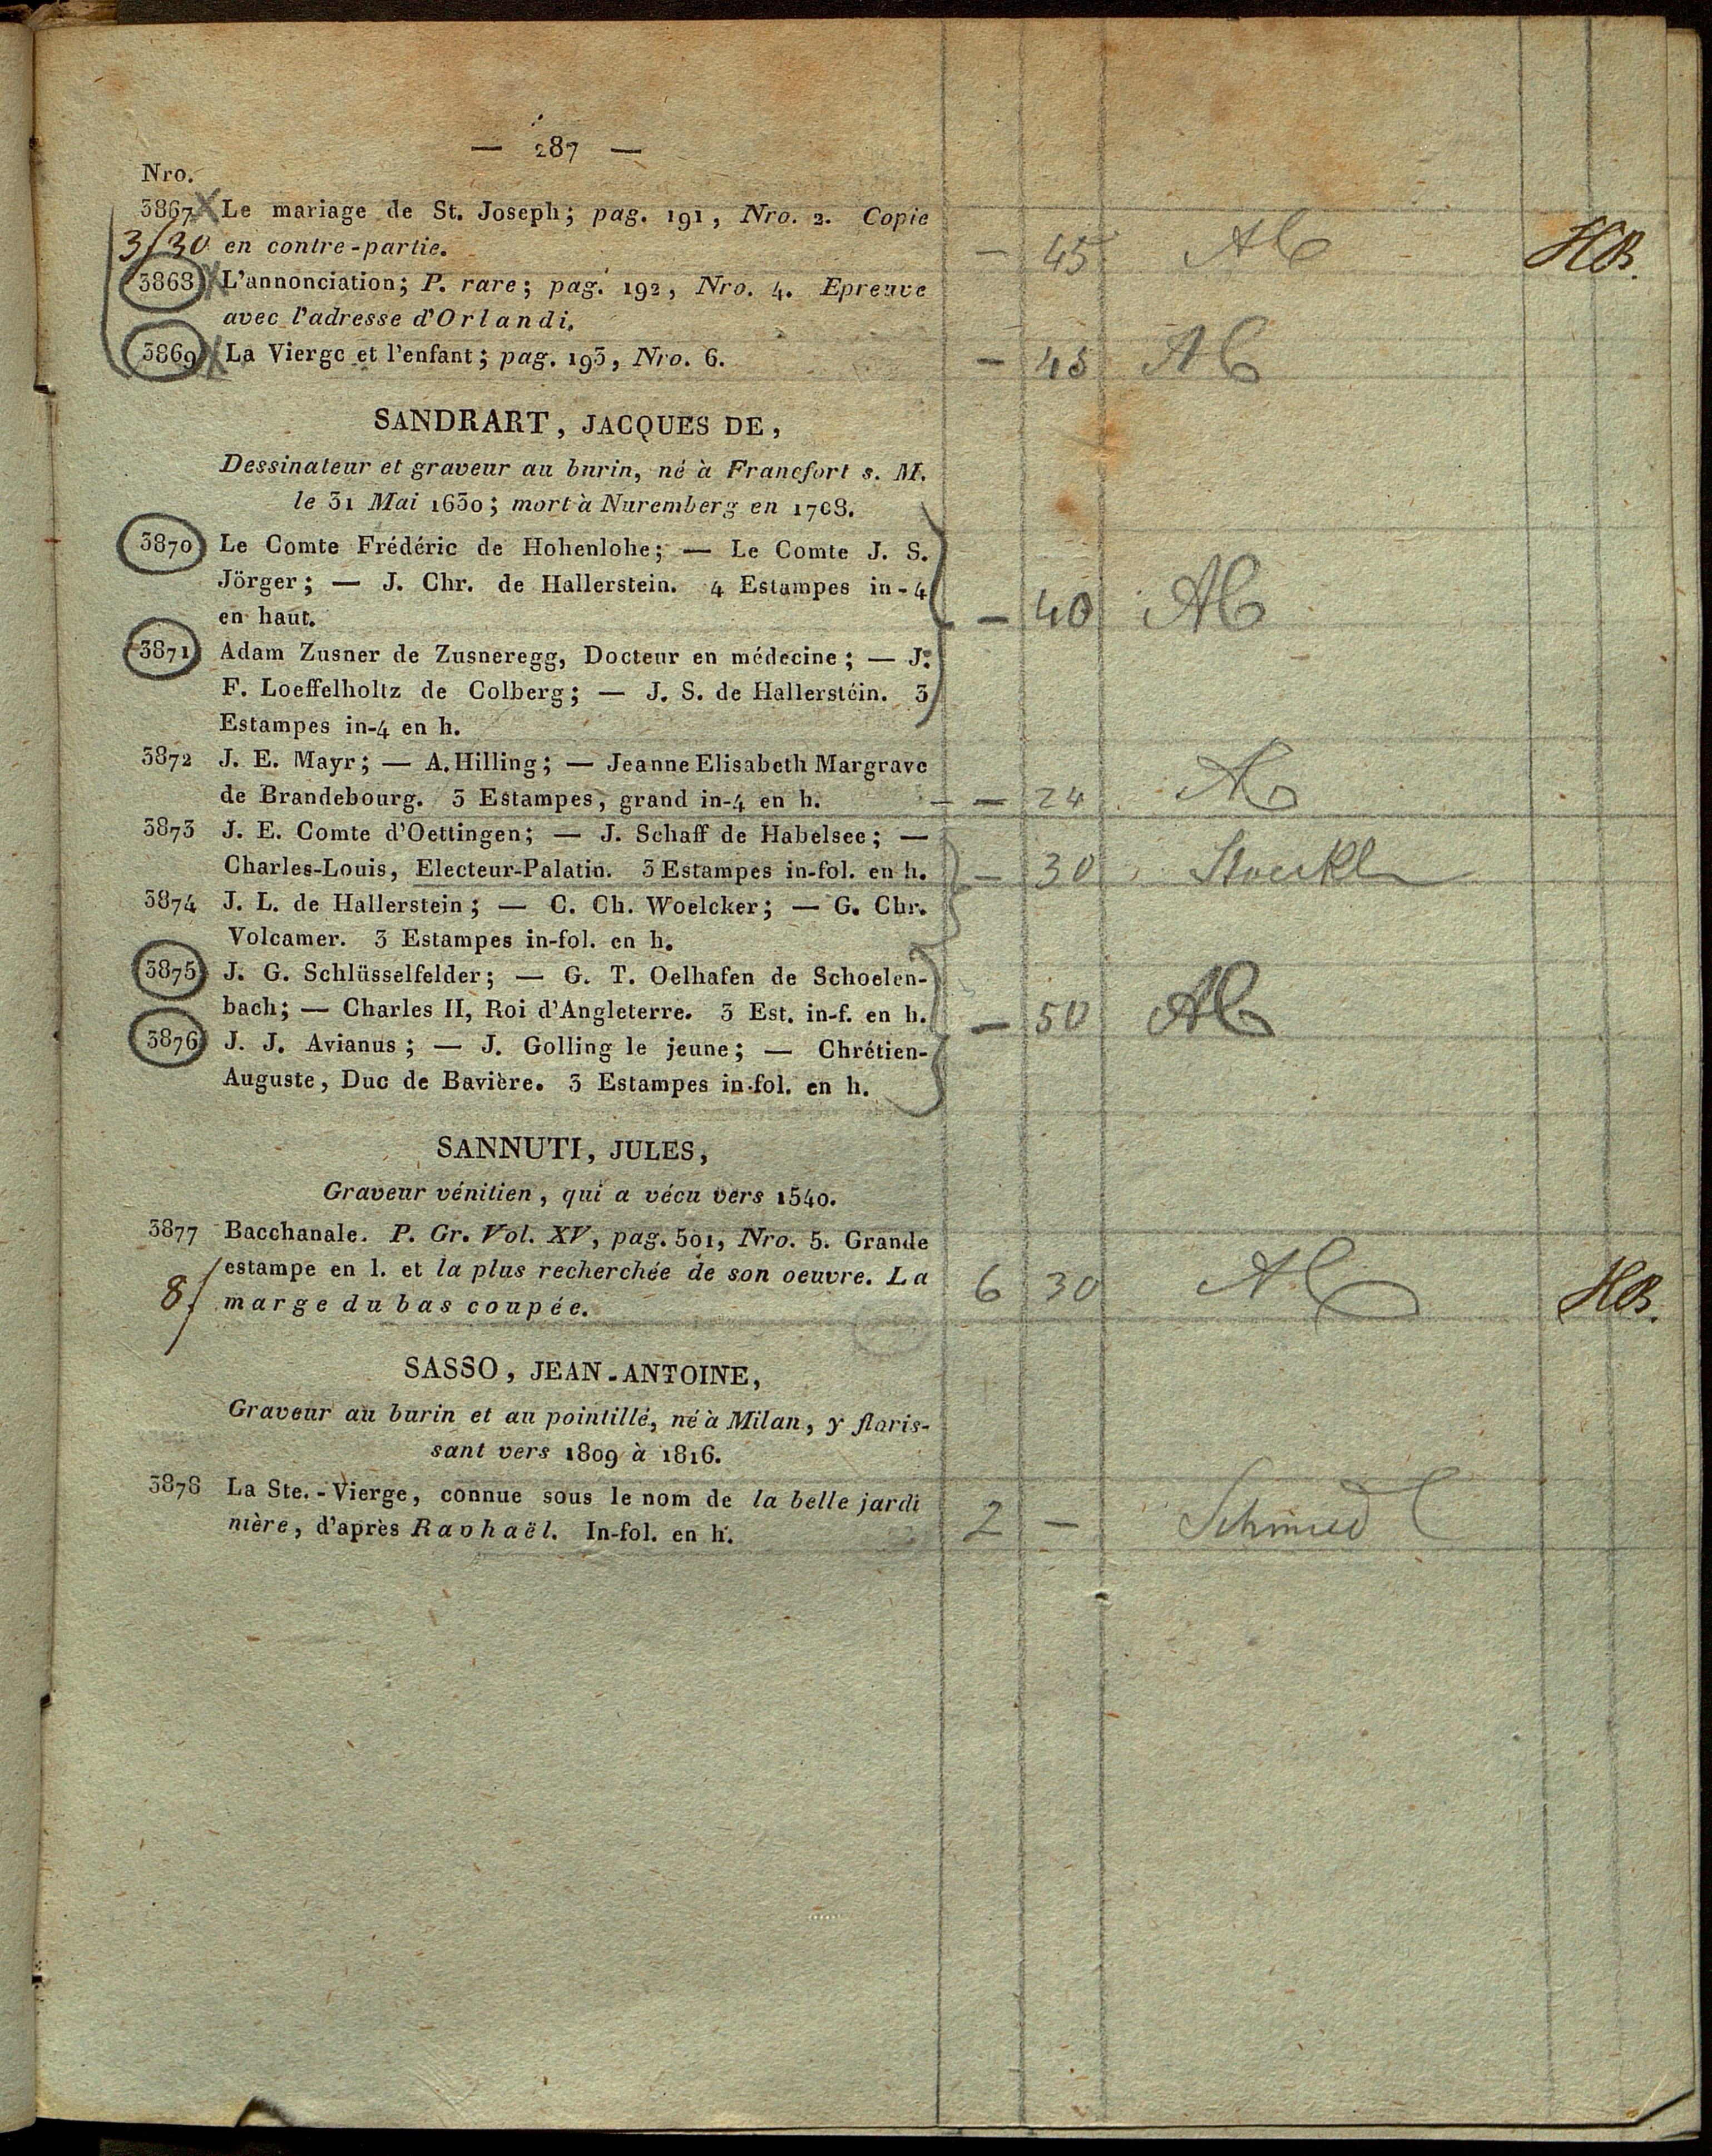 — 287 —
Nro.
3867 Le mariage de St. Joseph; pag. 191, Nro. 2. Copie - 45 HB.
3/30 en contre-partie.
3868 L'annonciation; P. rare; pag. 192, Nro. 4. Epreuve
avec l'adresse d'Orlandi.
3869 La Vierge et l'enfant; pag. 193, Nro. 6. - 45
SANDRART, JACQUES DE,
Dessinateur et graveur au burin, né à Francfort s. M.
le 31 Mai 1630; mort à Nuremberg en 1708.
3870 Le Comte Frédéric de Hohenlohe; — Le Comte J. S.
Jörger; — J. Chr. de Hallerstein. 4 Estampes in-4
en haut. - 40
3871 Adam Zusner de Zusneregg, Docteur en médecine; — J.
F. Loeffelholtz de Colberg; — J. S. de Hallerstéin. 3
Estampes in-4 en h.
3872 J. E. Mayr; — A. Hilling; — Jeanne Elisabeth Margrave
de Brandebourg. 3 Estampes, grand in-4 en h. - - 24
3873 J. E. Comte d'Oettingen; — J. Schaff de Habelsee; —
Charles-Louis, Electeur-Palatin. 3 Estampes in-fol. en h. - 30 Stoeckl
3874 J. L. de Hallerstein; — C. Ch. Woelcker; — G. Chr.
Volcamer. 3 Estampes in-fol. en h.
3875 J. G. Schlüsselfelder; — G. T. Oelhafen de Schoelen-
bach; — Charles II, Roi d'Angleterre. 3 Est. in-f. en h. - 50
3876 J. J. Avianus; — J. Golling le jeune; — Chrétien-
Auguste, Duc de Bavière. 3 Estampes in-fol. en h.
SANNUTI, JULES,
Graveur vénitien, qui a vécu vers 1540.
3877 Bacchanale. P. Gr. Vol. XV, pag. 501, Nro. 5. Grande
estampe en l. et la plus recherchée de son oeuvre. La 6 30 HB.
8/ marge du bas coupée.
SASSO, JEAN-ANTOINE,
Graveur au burin et au pointillé, né à Milan, y floris-
sant vers 1809 à 1816.
3878 La Ste.-Vierge, connue sous le nom de la belle jardi
nière, d'après Raphaël. In-fol. en h. 2 - Schmied